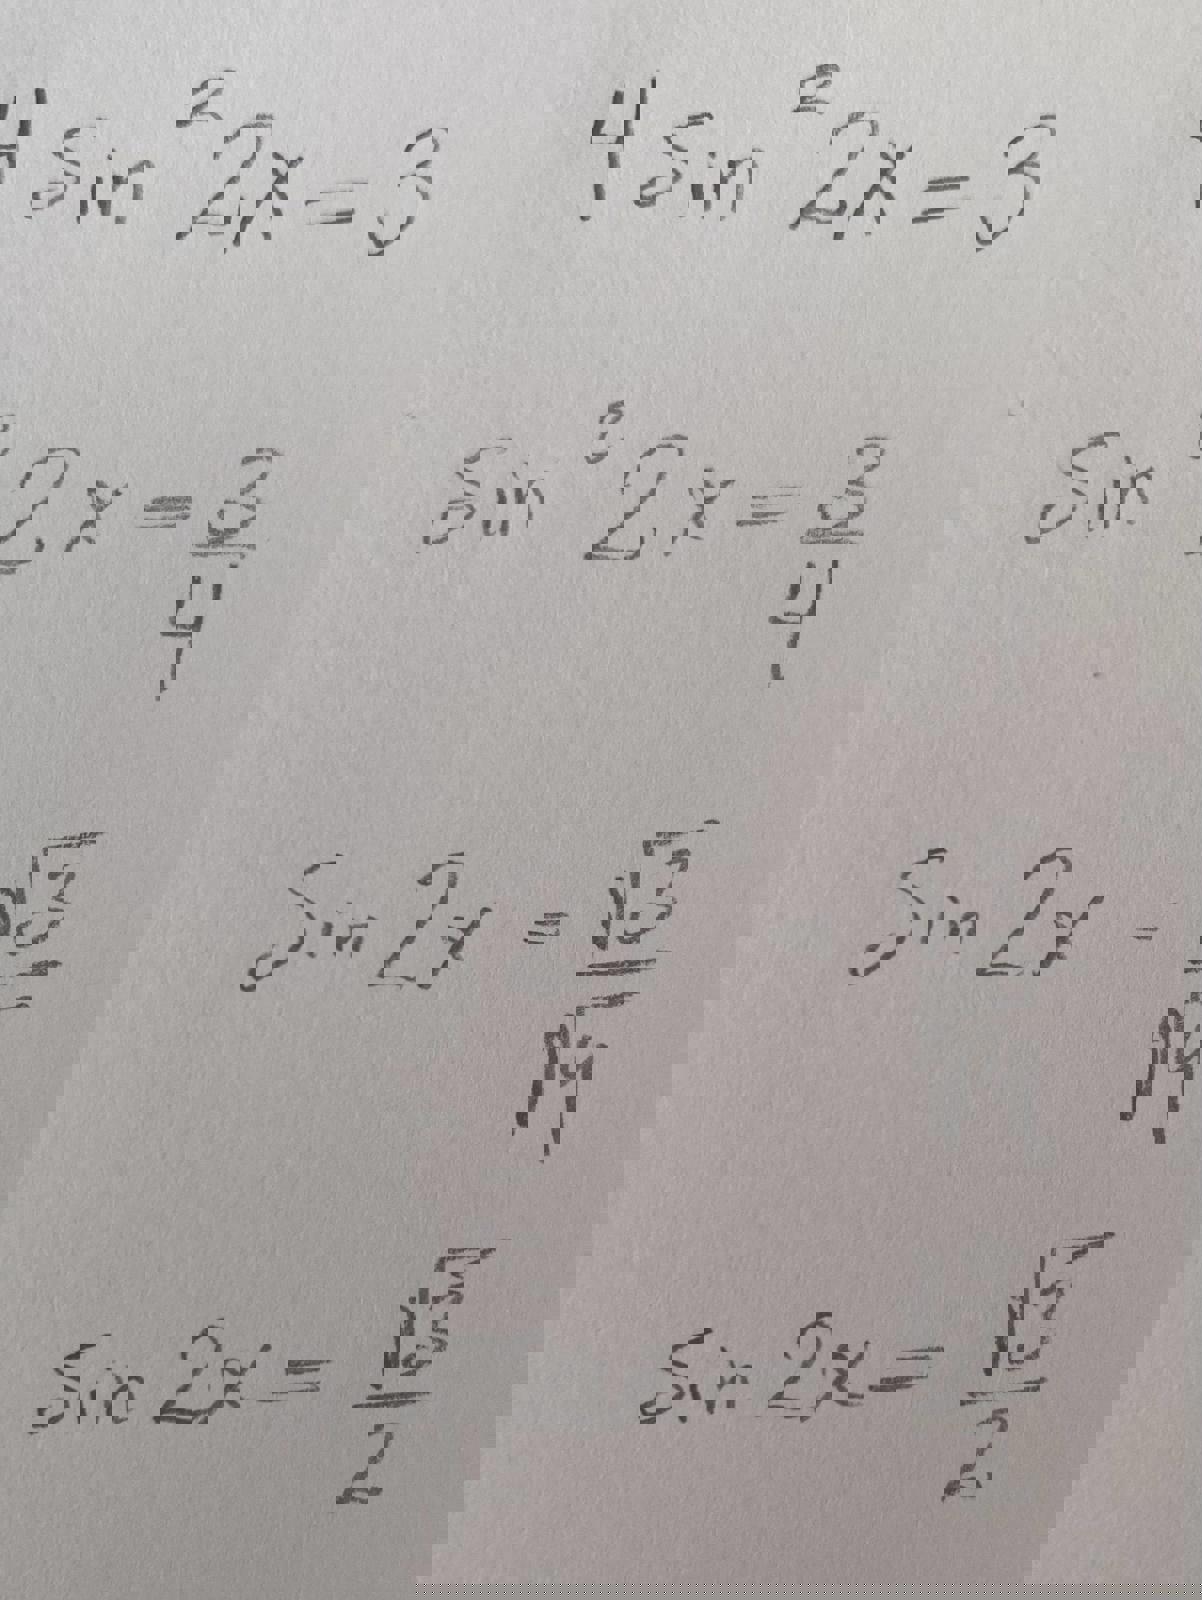 4 sin²2x = 3 4 sin²2x = 3
2x = 3/4 sin²2x = 3/4 sin
√3 sin 2x = √3/√4 sin 2x =
sin 2x = √3/2 sin 2x = √3/2